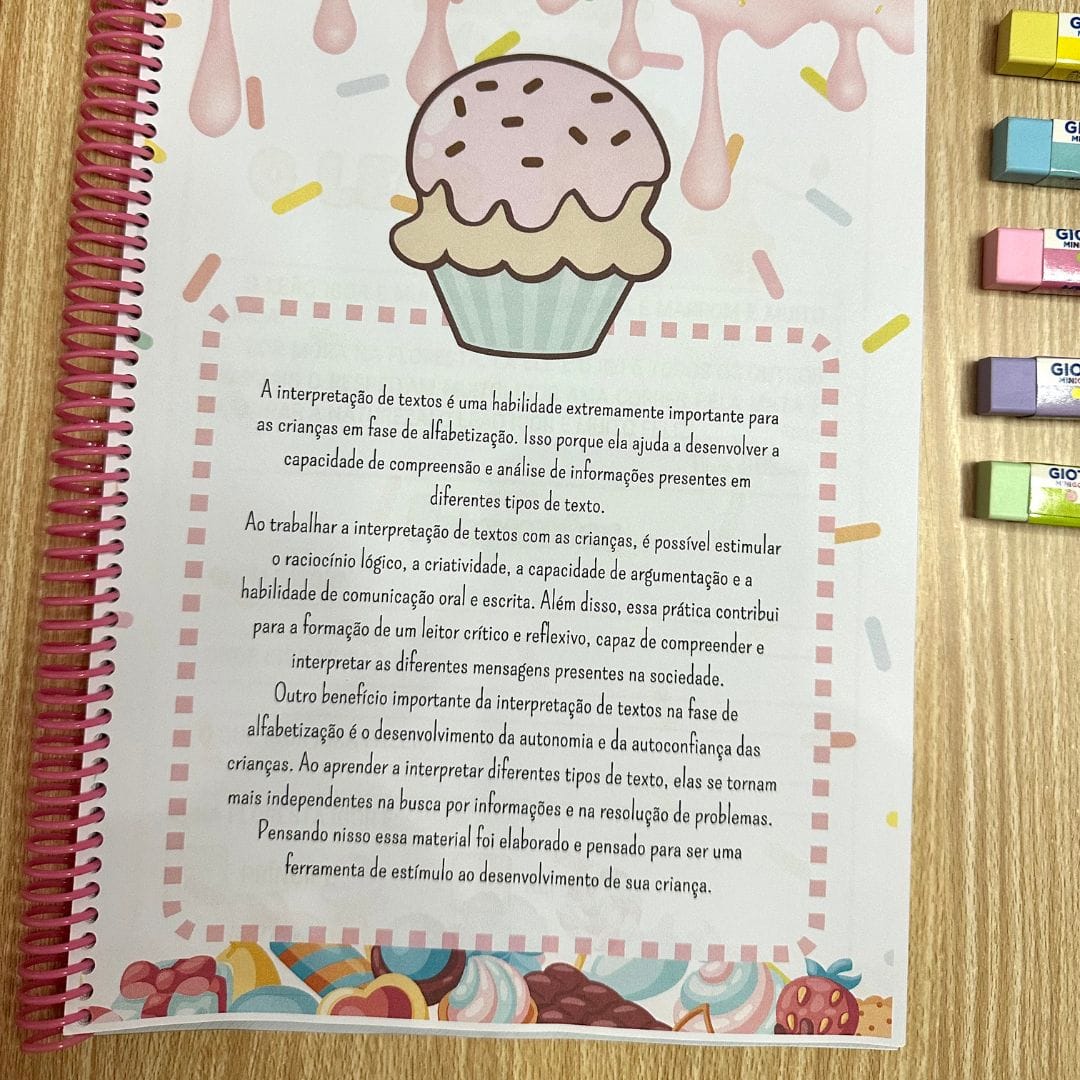 A interpretação de textos é uma habilidade extremamente importante para
as crianças em fase de alfabetização. Isso porque ela ajuda a desenvolver a
capacidade de compreensão e análise de informações presentes em
diferentes tipos de texto.
Ao trabalhar a interpretação de textos com as crianças, é possível estimular
o raciocínio lógico, a criatividade, a capacidade de argumentação e a
habilidade de comunicação oral e escrita. Além disso, essa prática contribui
para a formação de um leitor crítico e reflexivo, capaz de compreender e
interpretar as diferentes mensagens presentes na sociedade.
Outro benefício importante da interpretação de textos na fase de
alfabetização é o desenvolvimento da autonomia e da autoconfiança das
crianças. Ao aprender a interpretar diferentes tipos de texto, elas se tornam
mais independentes na busca por informações e na resolução de problemas.
Pensando nisso essa material foi elaborado e pensado para ser uma
ferramenta de estímulo ao desenvolvimento de sua criança.